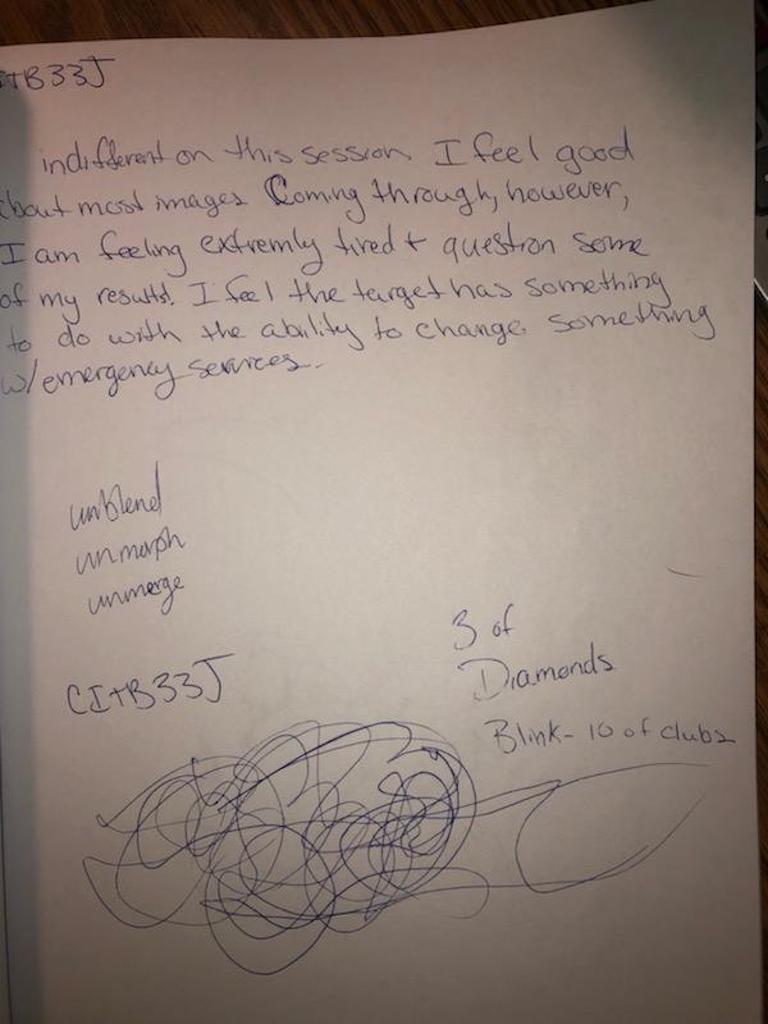 CI+B33J
indifferent on this session. I feel good
about most images Coming through, however,
I am feeling extremly tired + question some
of my results. I feel the target has something
to do with the ability to change something
w/emergency services.
unblend
unmorph
unmerge
3 of
Diamonds
CI+B33J
Blink- 10 of clubs